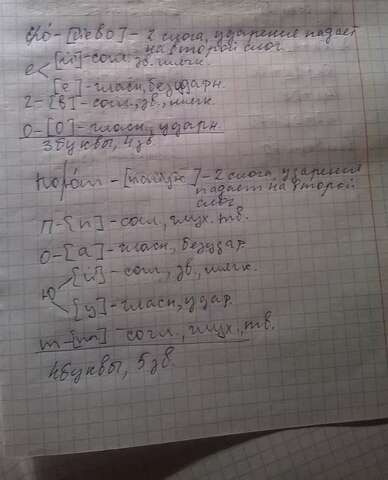 [йево] - 2 слога, ударение падает
на второй слог
е [й] - согл., зв., мягк.
[е] - гласн., безударн.
г - [в] - согл., зв., мягк.
о - [о] - гласн., ударн.
3 буквы, 4 зв.
- 2 слога, ударение
падает на второй
слог
п - [п] - согл., глух. тв.
о - [а] - гласн., безудар.
ю [й] - согл., зв., мягк.
[у] - гласн., удар.
т - [т] - согл., глух., тв.
4 буквы, 5 зв.